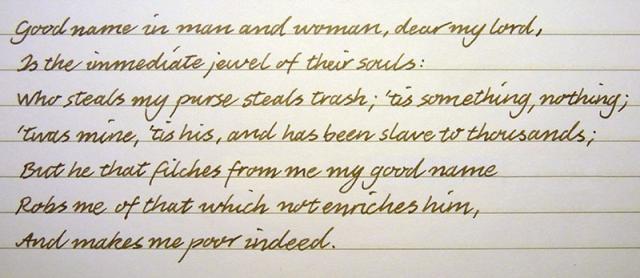 Good name in man and woman, dear my lord,
Is the immediate jewel of their souls:
Who steals my purse steals trash; 'tis something, nothing;
'twas mine, 'tis his, and has been slave to thousands;
But he that filches from me my good name
Robs me of that which not enriches him,
And makes me poor indeed.